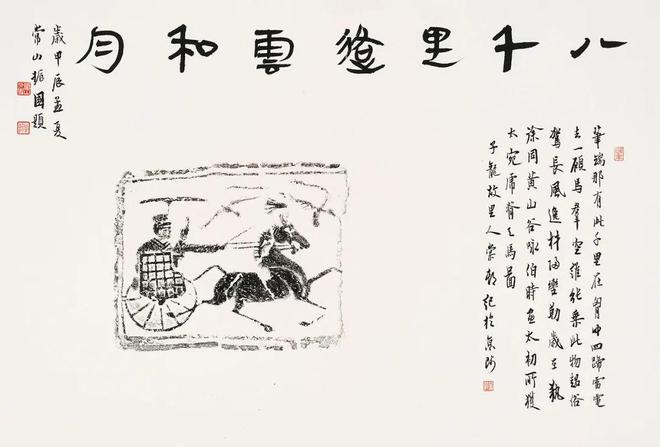 八千里路雲和月
筆端那有此千里在胸中四蹄雷電
去一顧馬羣空誰能乘此物超俗
駕長風逸材轡勒歲在執
徐同黃山谷咏伯時畫太初所獲
大宛虎脊天馬圖
子龍故里人崇紀於京師
歲甲辰孟夏
常山振國題